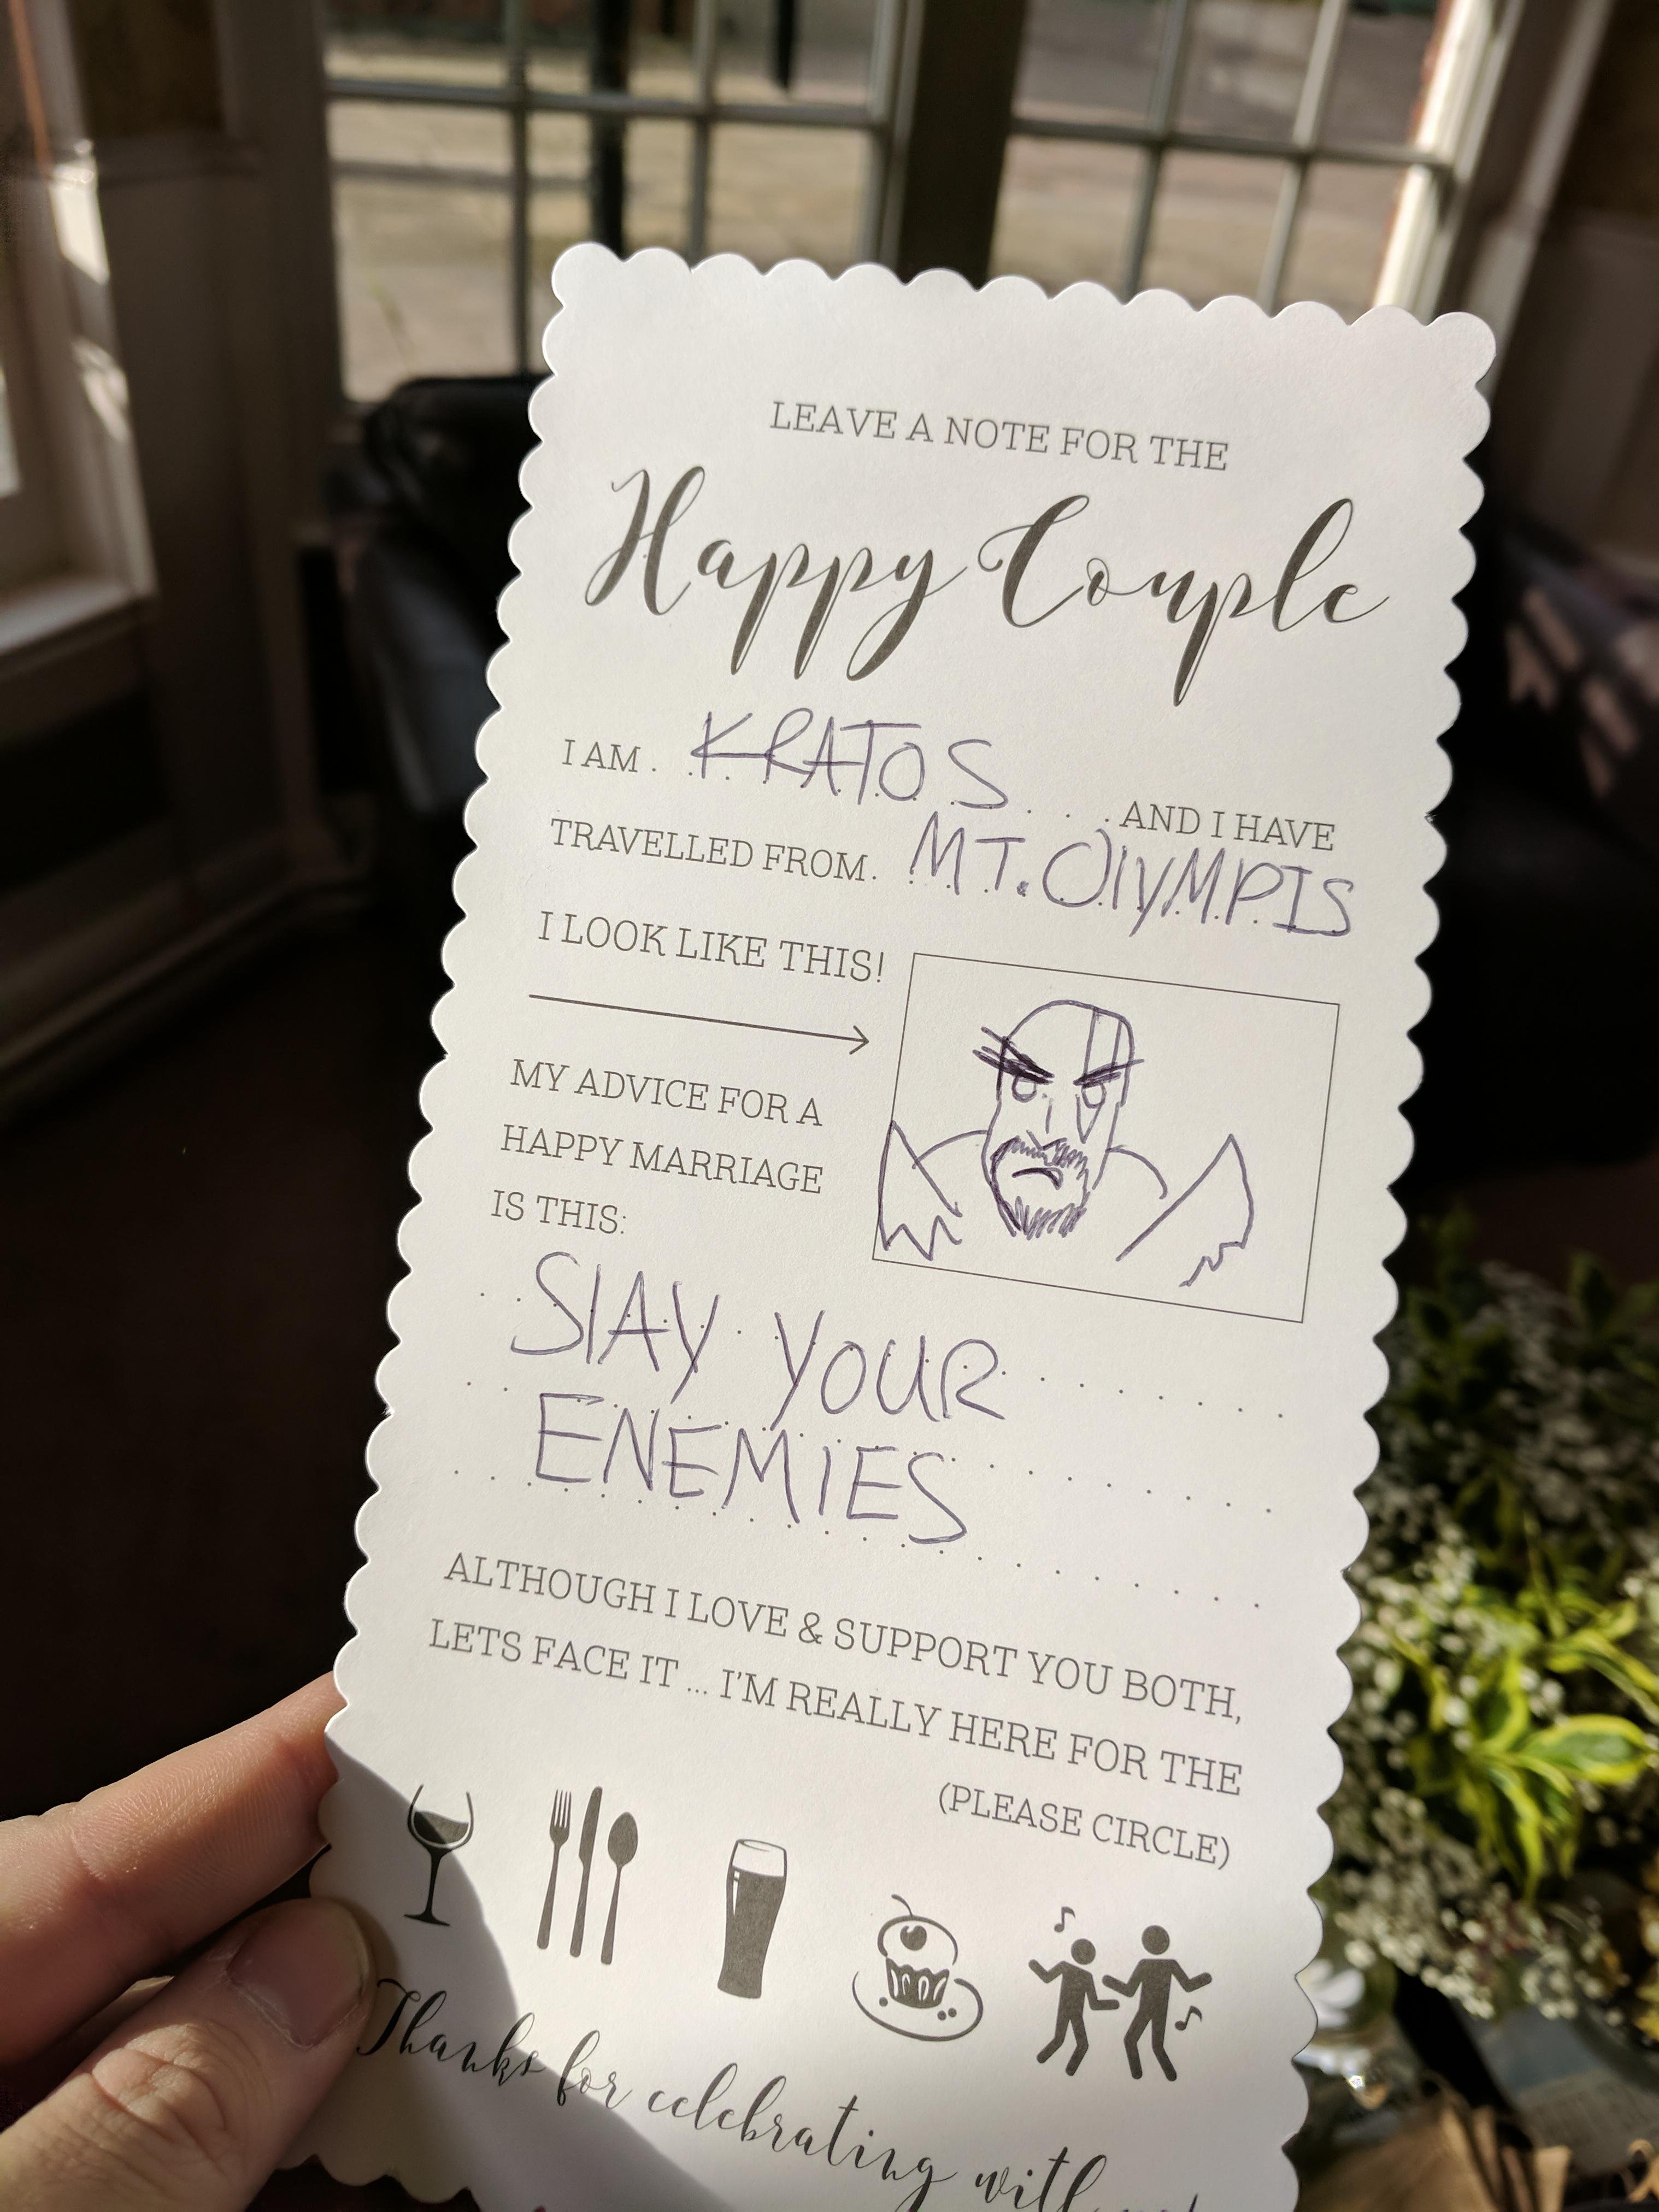 LEAVE A NOTE FOR THE
Happy Couple
I AM . KRATOS . . . AND I HAVE
TRAVELLED FROM . MT. OlyMPIS
I LOOK LIKE THIS!
MY ADVICE FOR A
HAPPY MARRIAGE
IS THIS:
SlAy yOUR
ENEMIES
ALTHOUGH I LOVE & SUPPORT YOU BOTH,
LETS FACE IT ... I'M REALLY HERE FOR THE
(PLEASE CIRCLE)
Thanks for celebrating with